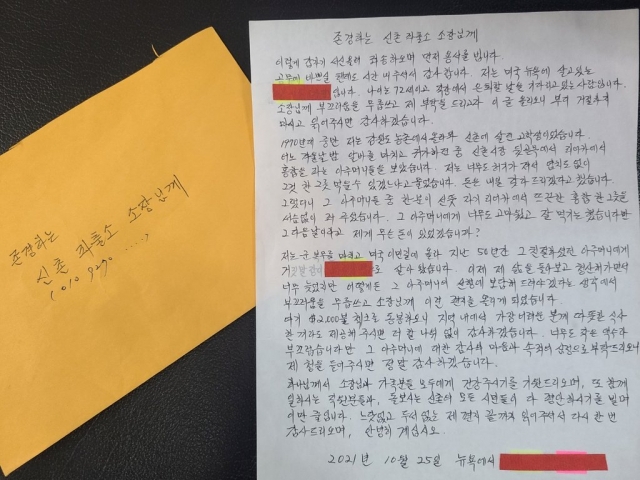 존경하는
신촌 파출소 소장님께
존경하는 신촌 파출소 소장님께
이렇게 갑작기 서신올려 죄송하오며 먼저 용서를 빕니다.
바쁘실 텐데도 시간 내주셔서 감사 합니다. 저는 미국 뉴욕에 살고있는
입니다. 나이는 72세이고 직장에서 은퇴할 날을 기다리고 있는 사람입니다.
소장님께 부끄러움을 무릅쓰고 제 부탁을 드리고자 이 글을 올리오니 부디 거절하지
마시고 읽어주시면 감사하겠습니다.
1970년대 중반 저는 강원도 농촌에서 올라와 신촌에 살던 고학생이었습니다.
어느 겨울날밤 알바를 마치고 귀가하던 중 신촌시장 뒷골목에서 리어카에서
홍합을 파는 아주머니들을 보았습니다. 저는 너무도 허기가 져서 염치도 없이
그것 한 그릇 먹을수 있겠느냐고 물었습니다. 돈은 내일 갖다 드리겠다고 했습니다.
그랬더니 그 아주머니들 중 한분이 선뜻 자기 리어카에서 뜨끈한 홍합 한 그릇을
서슴없이 퍼 주셨습니다. 그 아주머니에게 너무도 고마웠고 잘 먹기는 했습니다만
그 다음날이라고 제게 무슨 돈이 있었겠습니까?
저는 군 복무를 마치고 미국 이민길에 올라 지난 50년간 그 친절하셨던 아주머니에게
거짓말쟁이 로 살아 왔습니다. 이제 제 삶을 돌아보고 청산하기엔
너무 늦었지만 어떻게든 그 아주머니의 선행에 보답해 드려야겠다는 생각에서
부끄러움을 무릅쓰고 소장님께 이런 편지를 올리게 되었습니다.
여기 $2,000불 체크로 동봉하오니 지역 내에서 가장 어려운 분께 따뜻한 식사
한 끼라도 제공해 주시면 더 할 나위 없이 감사하겠습니다. 너무도 작은 액수라
부끄럽습니다만 그 아주머니에 대한 감사의 마음과 속죄의 심정으로 부탁드리오니
제 청을 들어주시면 정말 감사하겠습니다.
하나님께서 소장님과 가족분들 모두에게 건강주시기를 기원드리오며, 또 함께
일하시는 직원분들과, 돌보시는 신촌의 모든 시민들이 다 평안하시기를 빌며
이만 줄입니다. 느닷없고 두서 없는 제 편지 끝까지 읽어주셔서 다시 한 번
감사드리오며, 안녕히 계십시오.
2021년 10월 25일 뉴욕에서